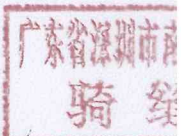 广东省深圳市南
骑缝